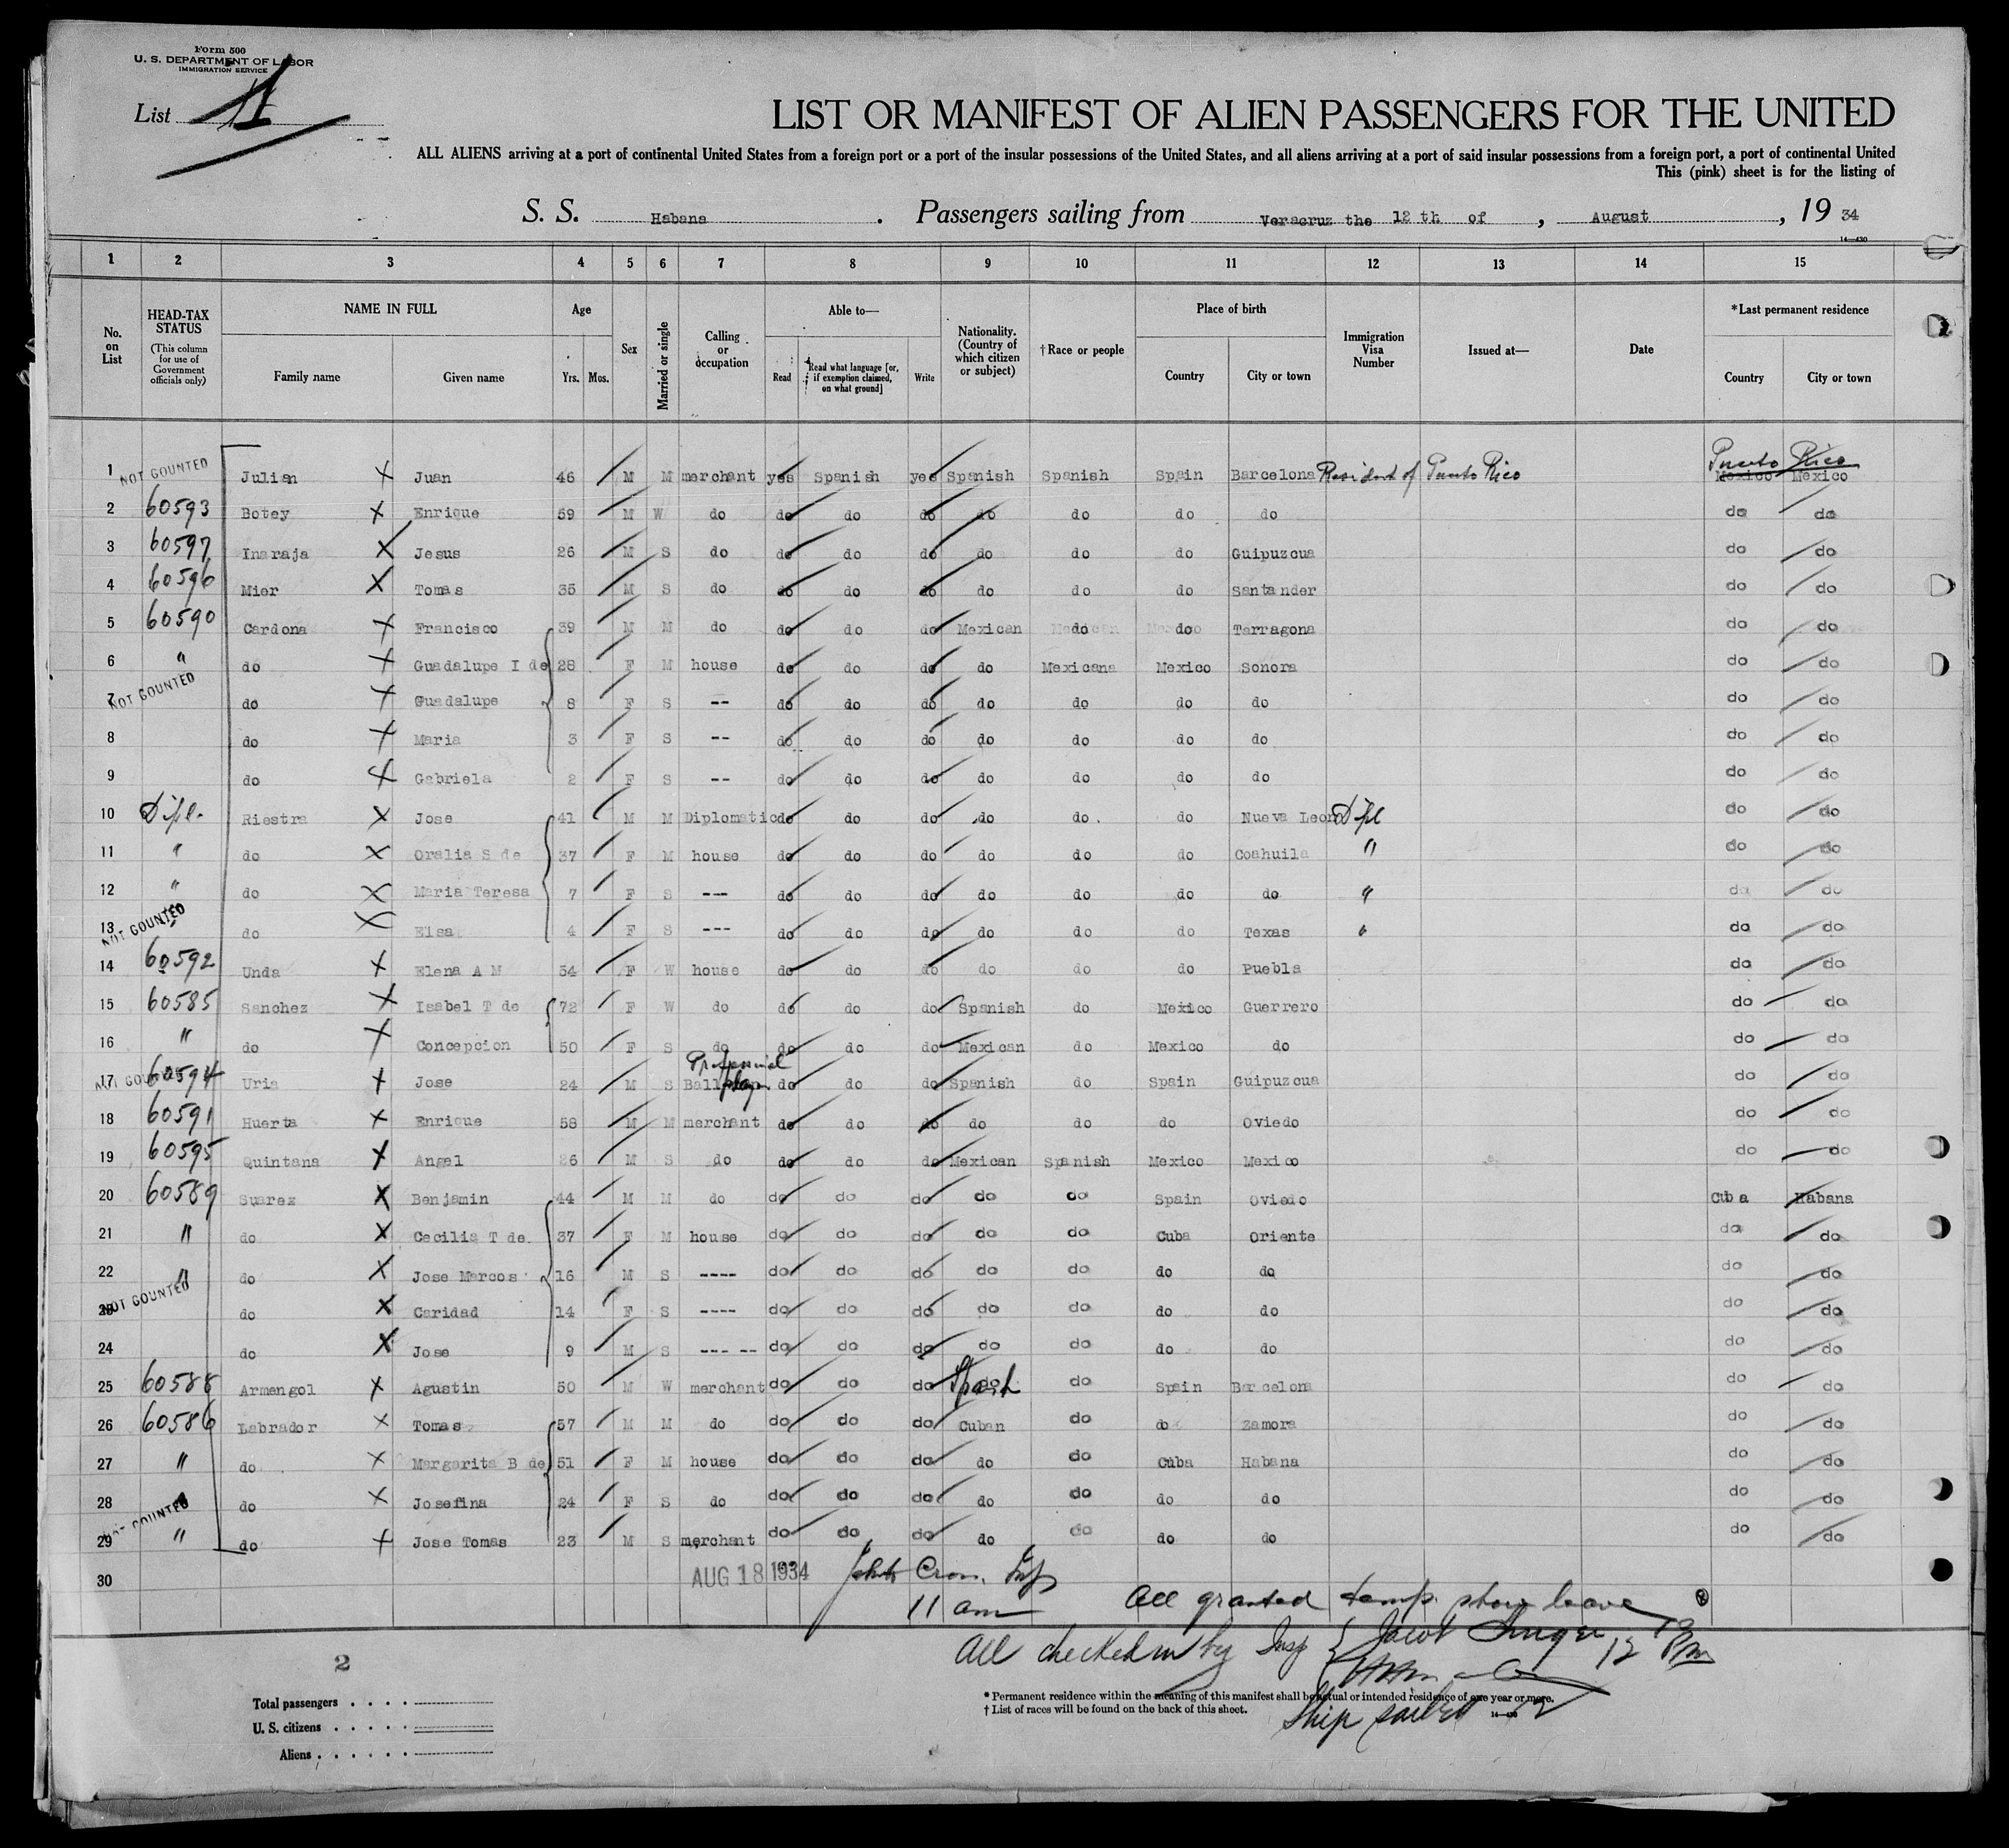 Form 500
U. S. DEPARTMENT OF LABOR
IMMIGRATION SERVICE
List
LIST OR MANIFEST OF ALIEN PASSENGERS FOR THE UNITED
ALL ALIENS arriving at a port of continental United States from a foreign port or a port of the insular possessions of the United States, and all aliens arriving at a port of said insular possessions from a foreign port, a port of continental United
This (pink) sheet is for the listing of
S. S. Habana . Passengers sailing from Veracruz the 12 th of , August , 19 34
14—430
1 2 3 4 5 6 7 8 9 10 11 12 13 14 15
No. on List
HEAD-TAX STATUS (This column for use of Government officials only)
NAME IN FULL
Family name Given name
Age
Yrs. Mos.
Sex
Married or single
Calling or occupation
Able to—
Read
Read what language [or, if exemption claimed, on what ground]
Write
Nationality. (Country of which citizen or subject)
†Race or people
Place of birth
Country City or town
Immigration Visa Number
Issued at—
Date
*Last permanent residence
Country City or town
Puerto Rico
1 NOT COUNTED Julian Juan 46 M M merchant yes Spanish yes Spanish Spanish Spain Barcelona Resident of Puerto Rico Mexico Mexico
2 60593 Botey Enrique 59 M W do do do do do do do do do do
3 60597 Inaraja Jesus 26 M S do do do do do do do Guipuzcua do do
4 60596 Mier Tomas 35 M S do do do do do do do Santander do do
5 60590 Cardona Francisco 39 M M do do do do Mexican do do Tarragona do do
6 " do Guadalupe I de 28 F M house do do do do Mexicana Mexico Sonora do do
7 NOT COUNTED do Guadalupe 8 F S -- do do do do do do do do do
8 do Maria 3 F S -- do do do do do do do do do
9 do Gabriela 2 F S -- do do do do do do do do do
10 Dipl. Riestra Jose 41 M M Diplomatic do do do do do do Nueva Leon Dipl do do
11 " do Oralia S de 37 F M house do do do do do do Coahuila " do do
12 " do Maria Teresa 7 F S --- do do do do do do do " do do
13 NOT COUNTED do Elsa 4 F S --- do do do do do do Texas " do do
14 60592 Unda Elena A M 54 F W house do do do do do do Puebla do do
15 60585 Sanchez Isabel T de 72 F W do do do do Spanish do Mexico Guerrero do do
16 " do Concepcion 50 F S do do do do Mexican do Mexico do do do
Professional
17 NOT COUNTED 60594 Uria Jose 24 M S Ball player do do do Spanish do Spain Guipuzcua do do
18 60591 Huerta Enrique 58 M M merchant do do do do do do Oviedo do do
19 60595 Quintana Angel 26 M S do do do do Mexican Spanish Mexico Mexico do do
20 60589 Suarez Benjamin 44 M M do do do do do do Spain Oviedo Cuba Habana
21 " do Cecilia T de. 37 F M house do do do do do Cuba Oriente do do
22 " do Jose Marcos 16 M S ---- do do do do do do do do do
23 NOT COUNTED do Caridad 14 F S ---- do do do do do do do do do
24 do Jose 9 M S --- -- do do do do do do do do do
25 60588 Armengol Agustin 50 M W merchant do do do Spanish do Spain Barcelona do do
26 60586 Labrador Tomas 57 M M do do do do Cuban do do Zamora do do
27 " do Margarita B de 51 F M house do do do do do Cuba Habana do do
28 " do Josefina 24 F S do do do do do do do do do do
29 NOT COUNTED " do Jose Tomas 23 M S merchant do do do do do do do do do
30
AUG 18 1934
11 am
All granted temp. shore leave
All checked in by Insp
2
12 Pm
Total passengers
U. S. citizens
Aliens
* Permanent residence within the meaning of this manifest shall be actual or intended residence of one year or more.
† List of races will be found on the back of this sheet.
Ship sailed